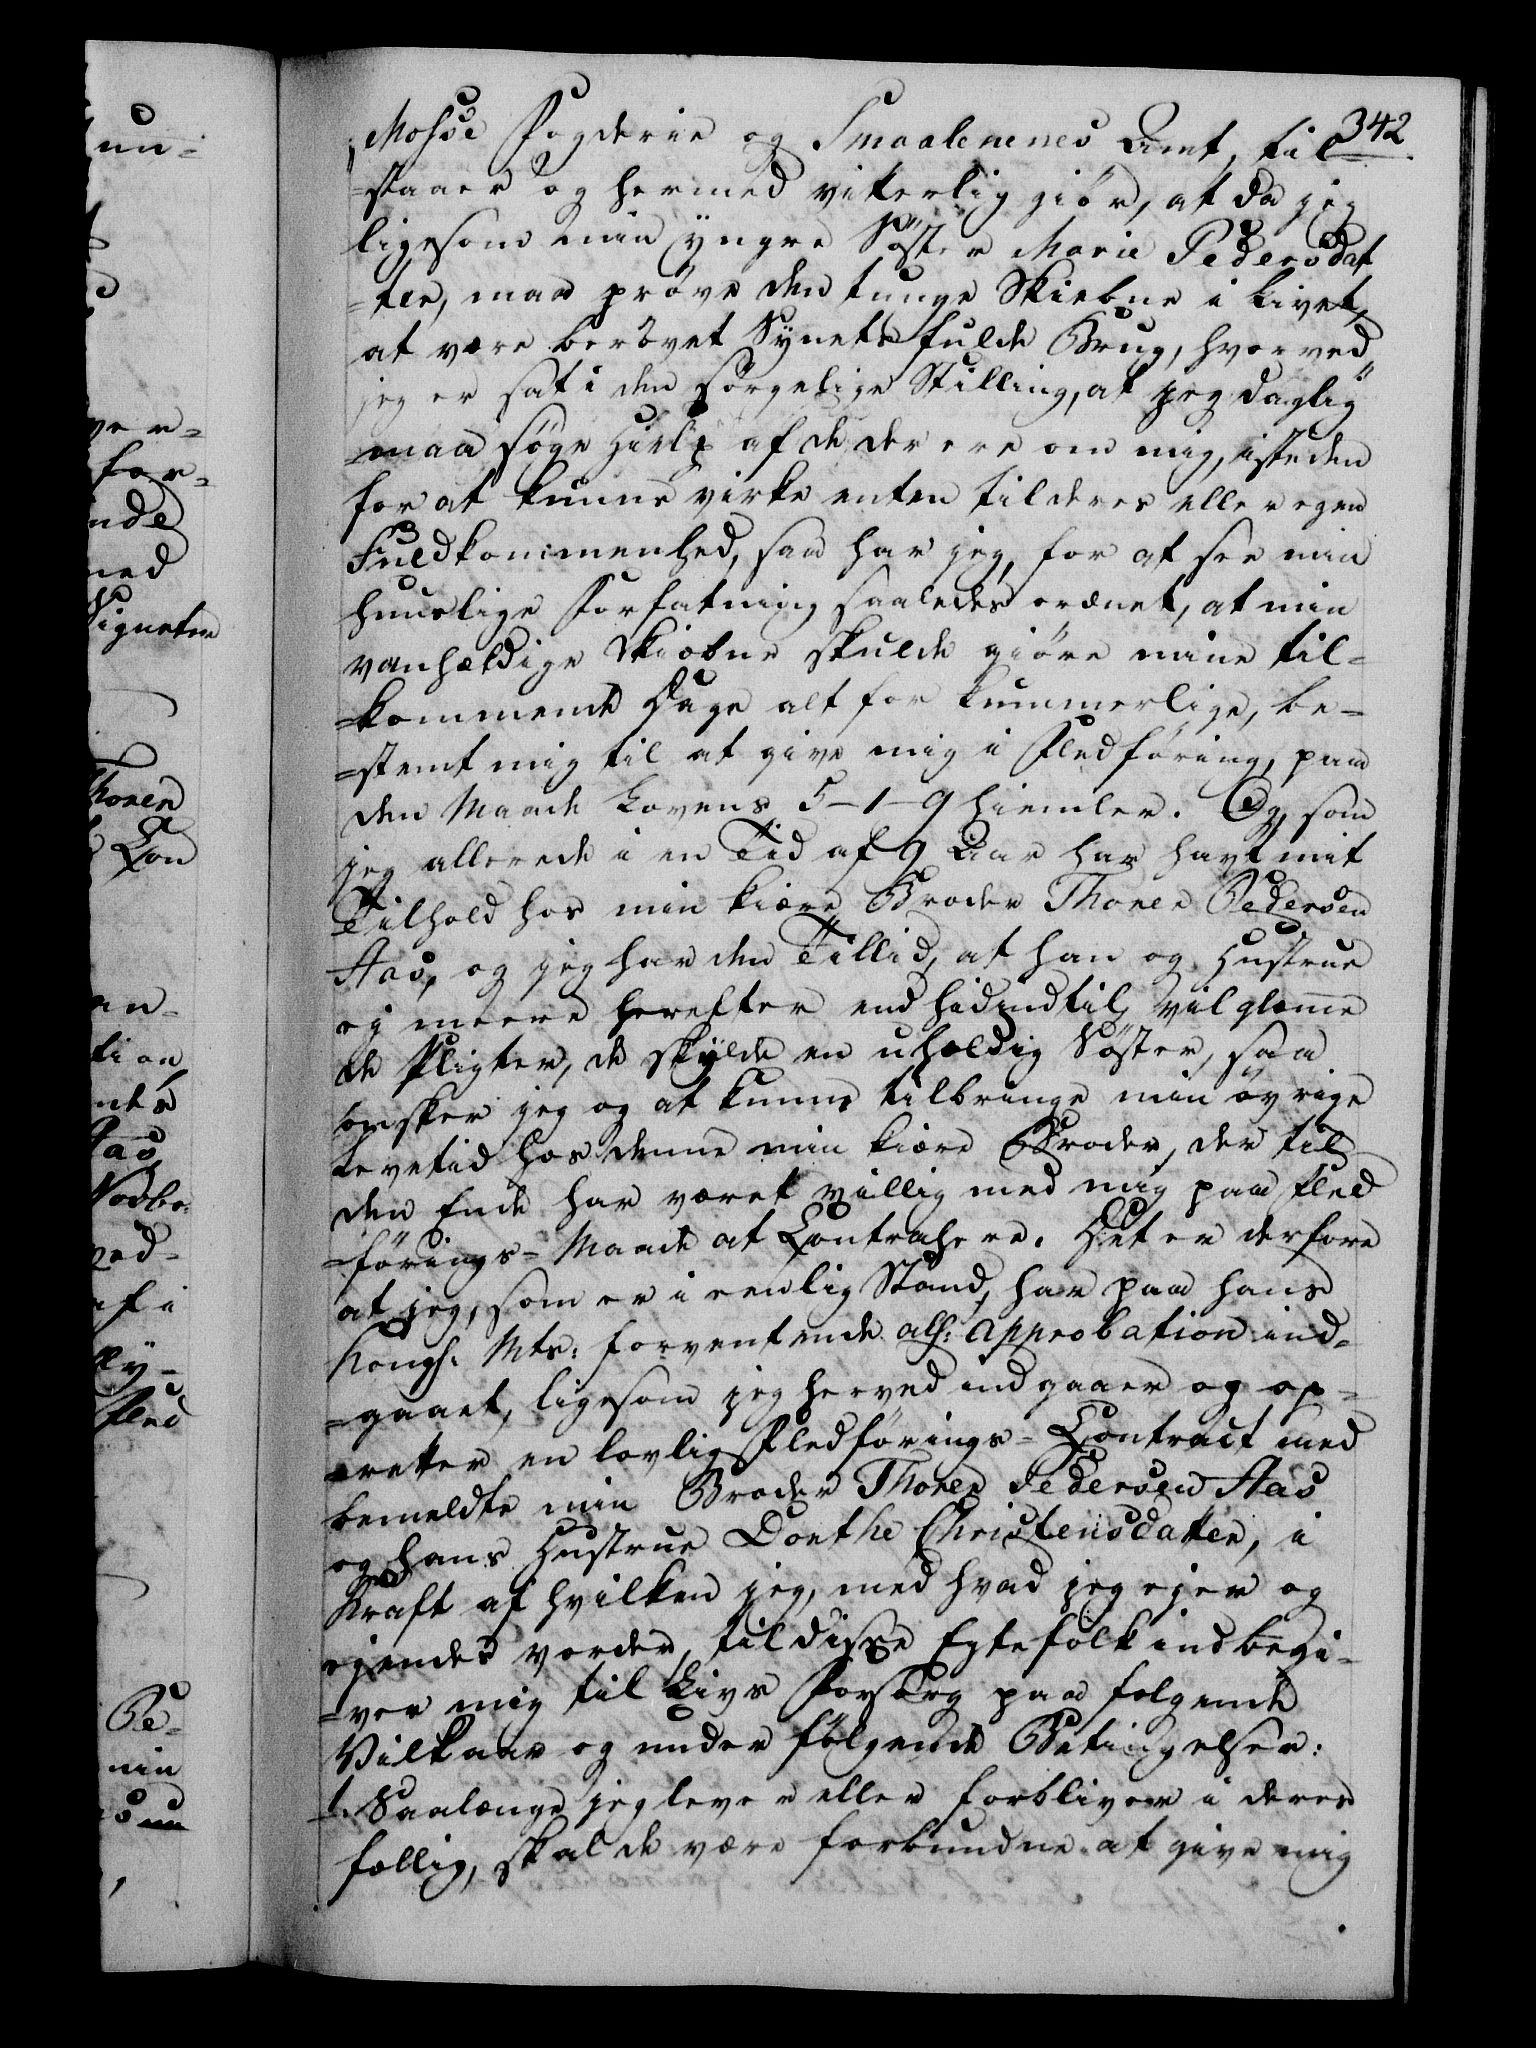 342
Mosse Fogderie og Smaalenenes Amt, til-
=staaer og hermed viterlig giör, at da jeg
ligesom min yngre Söster Marie Pedersdat-
=ter, maa pröve den tunge Skiebne i Livet,
at være berövet Synets fulde Brug, hvorved
jeg er sat i den sörgelige Stilling, at jeg daglig
maa söge Hielp af de der ere om mig, isteden
for at kunne virke enten til deres eller egen
Fuldkommenhed, saa har jeg, for at see min
huuslige Forfatning saaledes ordnet, at min
vanheldige Skiebne skulde giöre mine til=
=kommende Dage alt for kummerlige, be=
=stemt mig til at give mig i Fledföring, paa
den Maade Lovens 5-1-9 hiemler. Og, som
jeg allerede i en Tid af 9 Aar har havt mit
Tilhold hos min kiære Broder Thorer Pedersen
Aas, og jeg har den Tillid, at han og Hustrue
ej meere herefter end hidindtil vil glemme
de Pligter, de skylde en uheldig Söster, saa
önsker jeg og at kunne tilbringe min övrige
Levetid hos denne min kiære Broder, der til
den Ende har været villig med mig paa Fled
=förings=Maade at Contrahere. Det er derfore
at jeg, som er i eenlig Stand, har paa hans
Kongl. Mts: forventende all: Approbation ind=
=gaaet, ligesom jeg herved indgaaer og op=
=retter en lovlig Fledförings=Contract med
bemeldte min Broder Thorer Pedersen Aas
og hans Hustrue Dorthe Christensdatter, i
Kraft af hvilken jeg, med hvad jeg ejer og
ejendes vorder, til disse Egtefolk indbegi=
=ver mig til Livs Forsörg paa følgende
Vilkaar og under følgende Betingelser:
1. Saalænge jeg lever eller forbliver i deres
fællig, skal de være forbundne at give mig